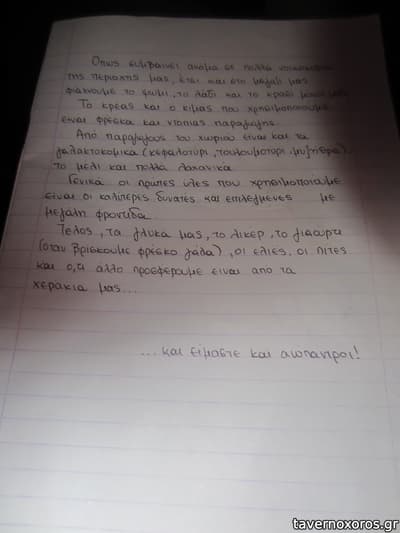 Οπως συμβαινει ακομα σε πολλα νοικοκυρια
της περιοχης μας, ετσι και στο μαγαζι μας
φτιαχνουμε το ψωμι, το λαδι και το κρασι μονοι μας.
Το κρεας και ο κιμας που χρησιμοποιουμε
ειναι φρεσκα και ντοπιας παραγωγης.
Απο παραγωγους του χωριου ειναι και τα
γαλακτοκομικα (κεφαλοτυρι, τουλουμοτυρι, μυζηθρα)
το μελι και πολλα λαχανικα.
Γενικα οι πρωτες υλες που χρησιμοποιουμε
ειναι οι καλυτερες δυνατες και επιλεγμενες με
μεγαλη φροντιδα.
Τελος, τα γλυκα μας, το λικερ, το γιαουρτι
(οταν βρισκουμε φρεσκο γαλα), οι ελιες, οι πιτες
και ο,τι αλλο προσφερουμε ειναι απο τα
χερακια μας...
...και ειμαστε και αυπαντροι!
tavernoxoros.gr